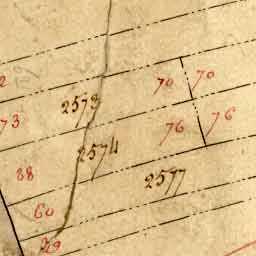 2
70 70
2573
73
76 76
2574
88
2577
60
29